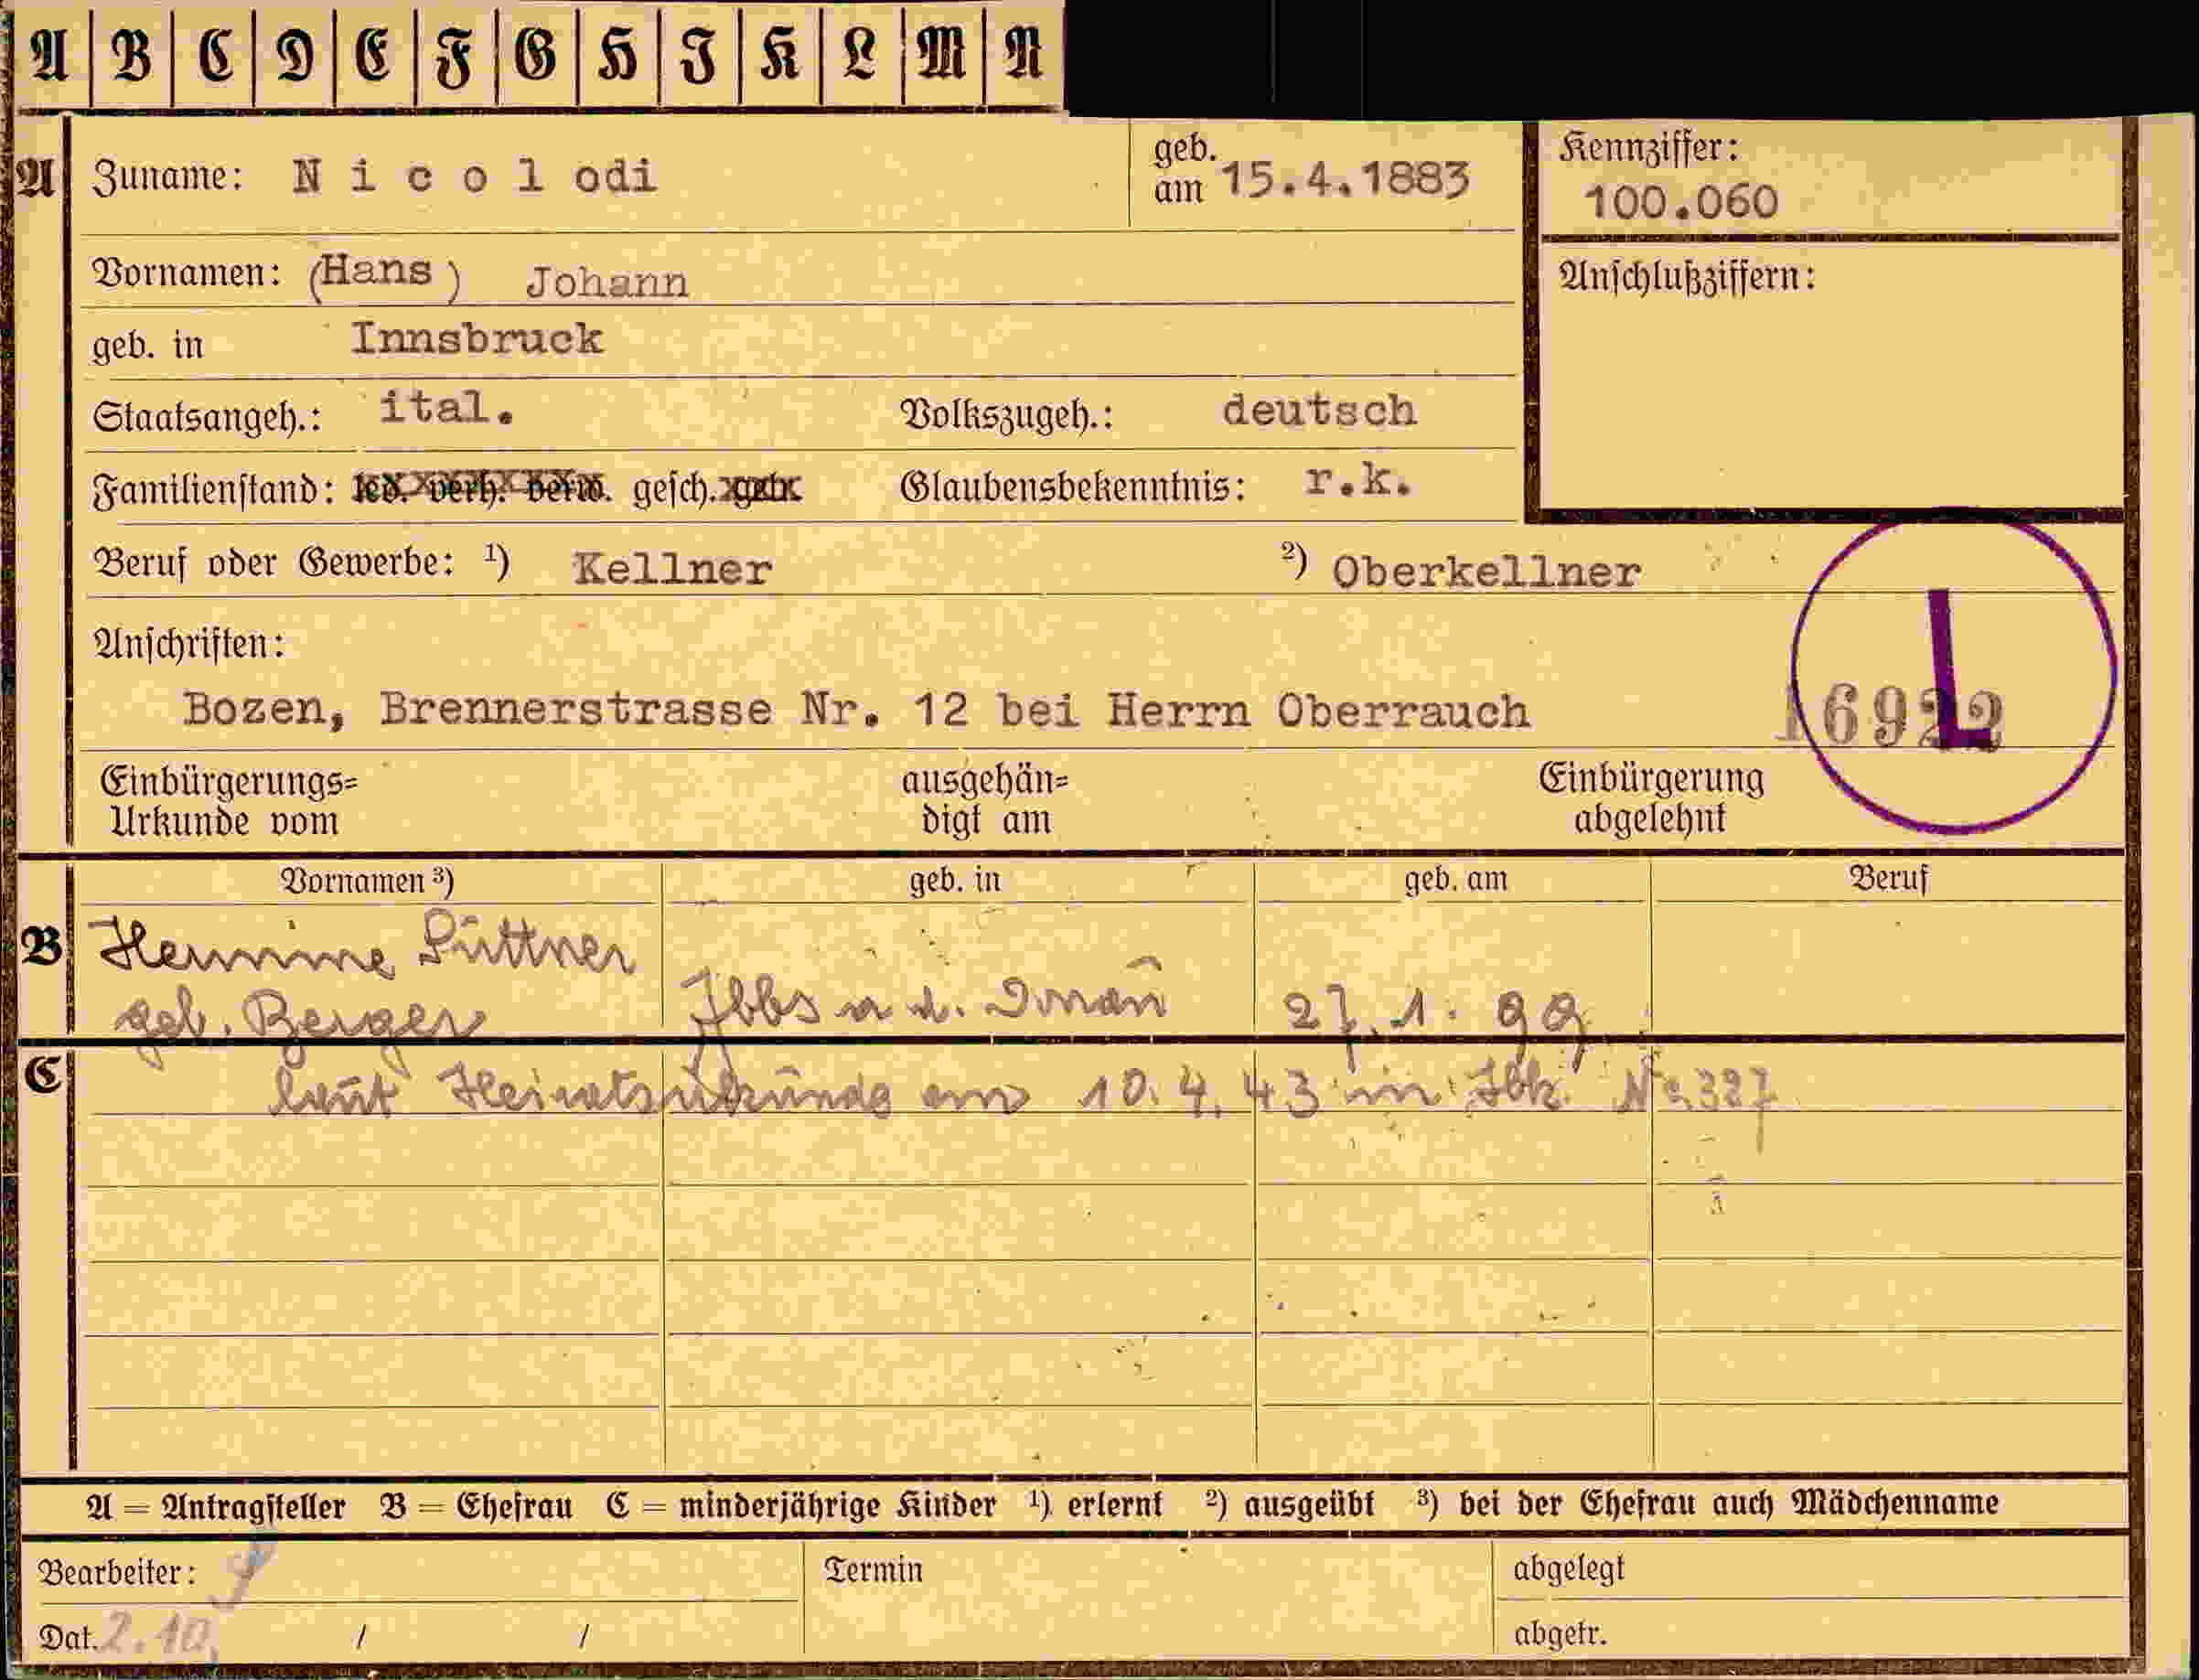 A B C D E F G H I K L M N
A Zuname: N i c o l odi geb. am 15.4.1883 Kennziffer: 100.060
Vornamen: (Hans) Johann Anschlußziffern:
geb. in Innsbruck
Staatsangeh.: ital. Volkszugeh.: deutsch
Familienstand: led. verh. verw. gesch. getr. Glaubensbekenntnis: r.k.
Beruf oder Gewerbe: ¹) Kellner ²) Oberkellner
L
Anschriften:
Bozen, Brennerstrasse Nr. 12 bei Herrn Oberrauch 16922
Einbürgerungs= ausgehän= Einbürgerung
Urkunde vom digt am abgelehnt
Vornamen ³) geb. in geb. am Beruf
B Hermine Püttner
geb. Berger Ybbs a d. Donau 27. 1. 99
C
laut Heiratsurkunde am 10. 4. 43 in Ibk. No 387
A = Antragsteller B = Ehefrau C = minderjährige Kinder ¹) erlernt ²) ausgeübt ³) bei der Ehefrau auch Mädchenname
Bearbeiter: Termin abgelegt
Dat. 2.10. / / abgetr.